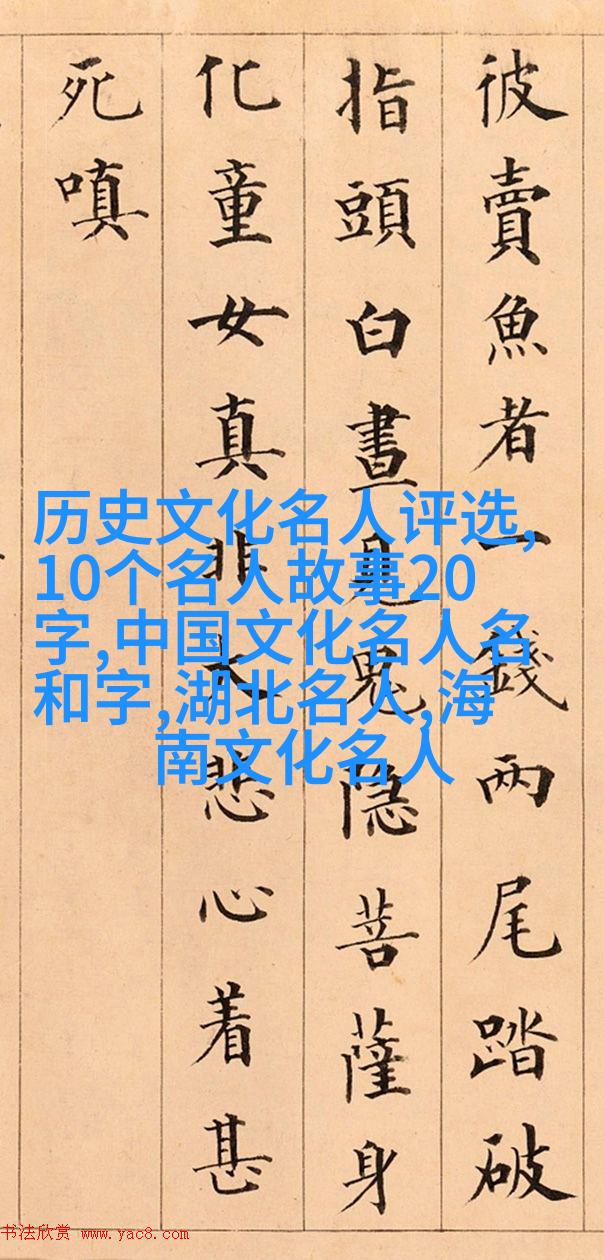 彼賣魚者一錢两尾踏破
指頭白晝見鬼隐菩薩身
化童女真非大悲心着甚
死嗔
历史文化名人评选,
10个名人故事20
字,中国文化名人名
和字,湖北名人,海
南文化名人
书法欣赏 www.yac8.com